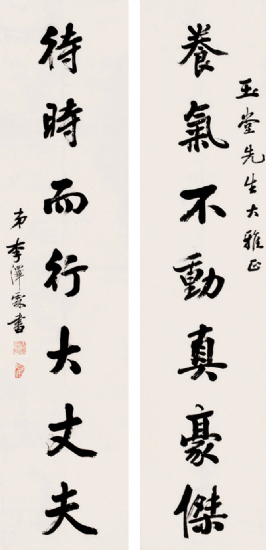 玉堂先生大雅正
養氣不動真豪傑
待時而行大丈夫
弟李澤霖書